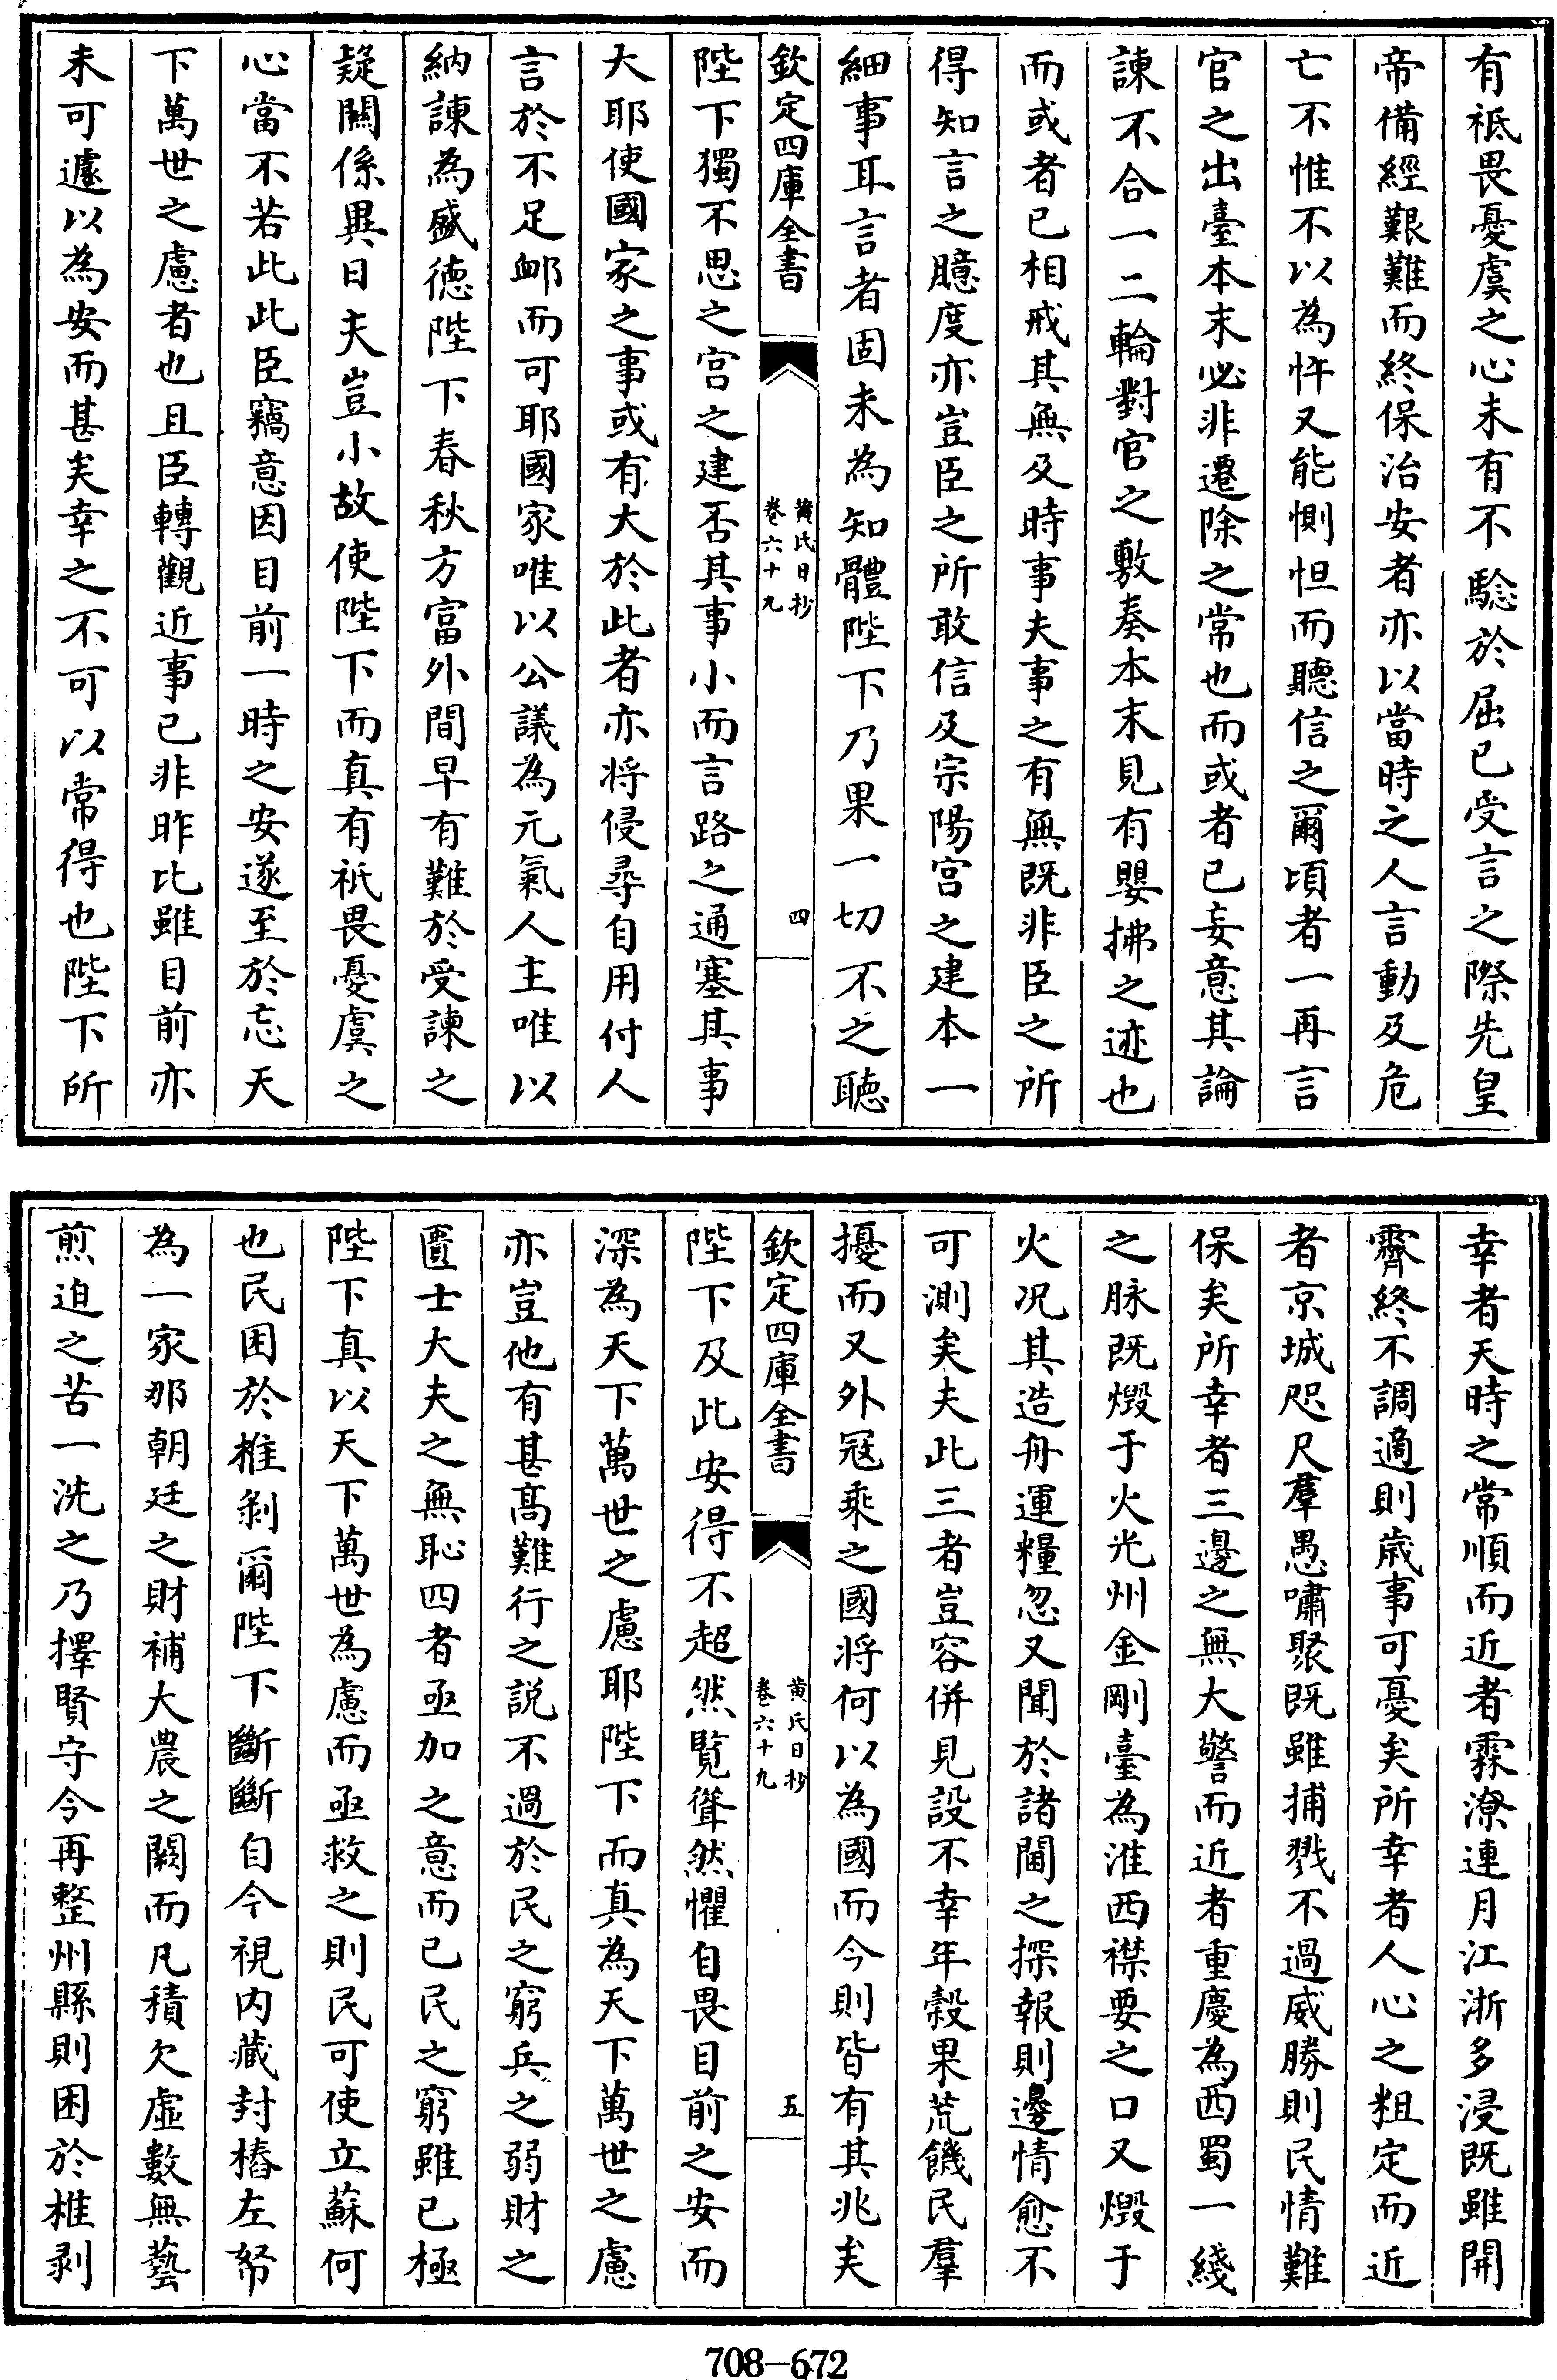 有祗畏憂虞之心未有不騐於屈已受言之際先皇
帝備經艱難而終保治安者亦以當時之人言動及危
亡不惟不以為忤又能惻怛而聽信之爾頃者一再言
官之出臺本末必非遷除之常也而或者已妄意其論
諫不合一二輪對官之敷奏本末見有嬰拂之迹也
而或者已相戒其無及時事夫事之有無既非臣之所
得知言之臆度亦豈臣之所敢信及宗陽宫之建本一
細事耳言者固未為知體陛下乃果一切不之聽
欽定四庫全書
黄氏日抄
卷六十九
四
陛下獨不思之宫之建否其事小而言路之通塞其事
大耶使國家之事或有大於此者亦将侵尋自用付人
言於不足衈而可耶國家唯以公議為元氣人主唯以
納諫為盛德陛下春秋方富外間早有難於受諫之
疑關係異日夫豈小故使陛下而真有祗畏憂虞之
心當不若此此臣竊意因目前一時之安遂至於忘天
下萬世之慮者也且臣轉觀近事已非昨比雖目前亦
未可遽以為安而甚矣幸之不可以常得也陛下所
幸者天時之常順而近者霖潦連月江浙多浸既雖開
霽終不調適則歳事可憂矣所幸者人心之粗定而近
者京城咫尺羣愚嘯聚既雖捕戮不過威勝則民情難
保矣所幸者三邊之無大警而近者重慶為西蜀一綫
之脉既燬于火光州金剛臺為淮西襟要之口又燬于
火况其造舟運糧忽又聞於諸閫之探報則邊情愈不
可測矣夫此三者豈容併見設不幸年穀果荒饑民羣
擾而又外冦乘之國将何以為國而今則皆有其兆矣
欽定四庫全書
黄氏日抄
卷六十九
五
陛下及此安得不超然覧聳然懼自畏目前之安而
深為天下萬世之慮耶陛下而真為天下萬世之慮
亦豈他有甚髙難行之説不過於民之窮兵之弱財之
匱士大夫之無恥四者亟加之意而已民之窮雖已極
陛下真以天下萬世為慮而亟救之則民可使立蘇何
也民困於椎剥爾陛下斷斷自今視内藏封樁左帑
為一家那朝廷之財補大農之闕而凡積欠虛數無藝
煎迫之苦一洗之乃擇賢守令再整州縣則困於椎剥
708-672